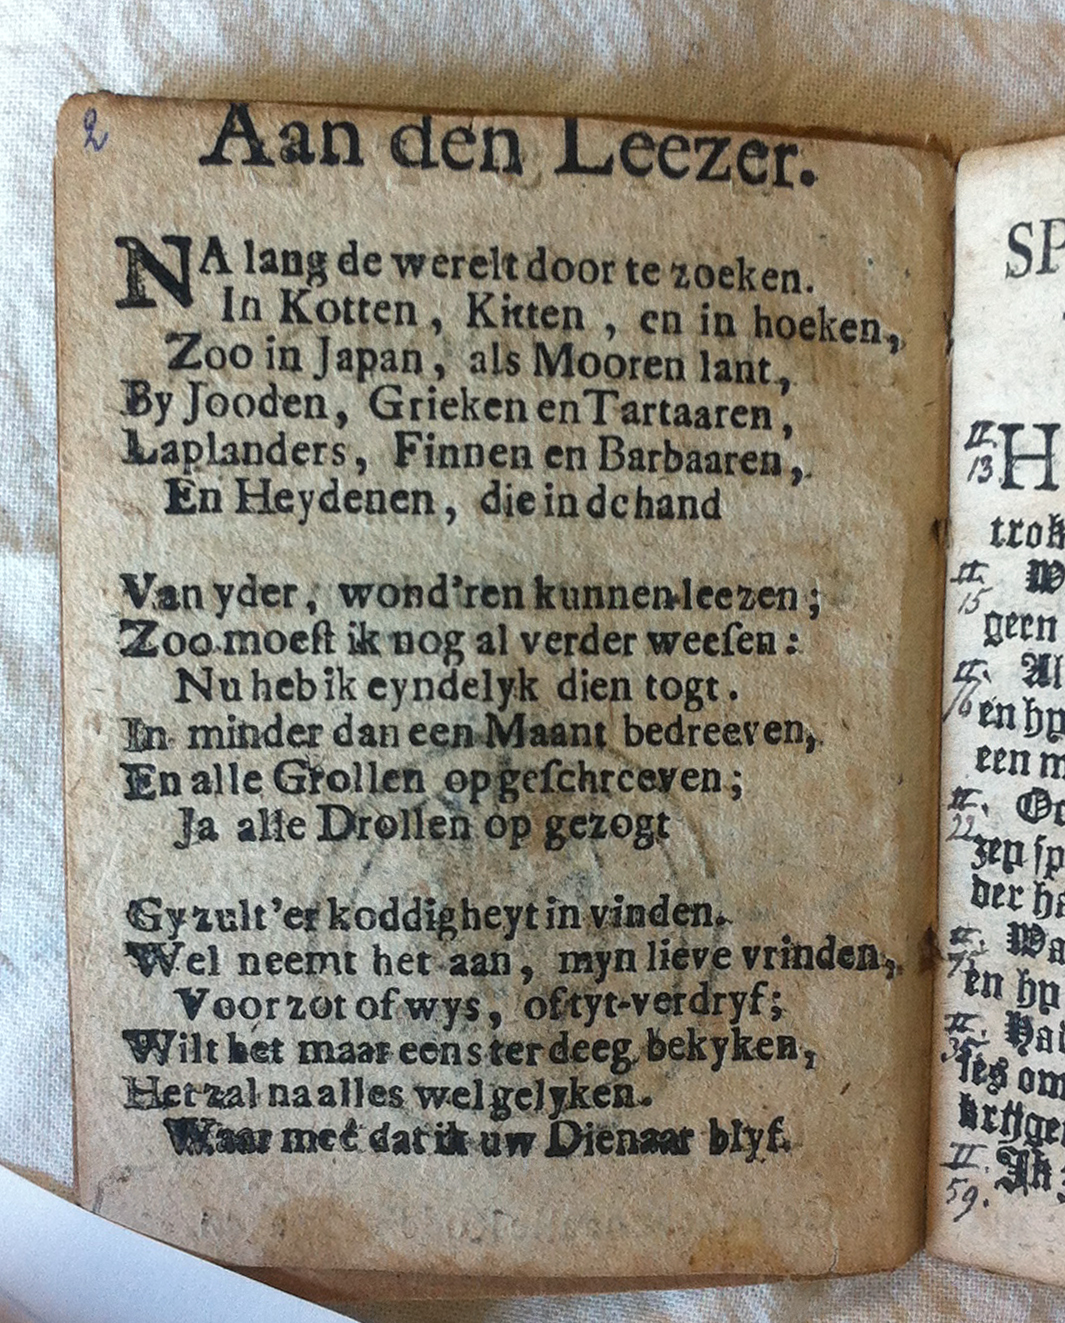 2
Aan den Leezer.
NA lang de werelt door te zoeken.
In Kotten, Kitten, en in hoeken,
Zoo in Japan, als Mooren lant,
By Jooden, Grieken en Tartaaren,
Laplanders, Finnen en Barbaaren,
En Heydenen, die in de hand
Van yder, wond'ren kunnen leezen;
Zoo moeſt ik nog al verder weeſen:
Nu heb ik eyndelyk dien togt.
In minder dan een Maant bedreeven,
En alle Grollen opgeſchreeven;
Ja alle Drollen op gezogt
Gy zult'er koddigheyt in vinden.
Wel neemt het aan, myn lieve vrinden,
Voor zot of wys, of tyt-verdryf;
Wilt het maar eens ter deeg bekyken,
Het zal na alles wel gelyken.
Waar meé dat ik uw Dienaar blyf.
SP
II.
13
H
trok
II.
15
W
gern
II.
16
Al
en hy
een m
II.
22
Oo
zey ſp
der ha
II.
75
Wa
en hy
II.
35
Hai
les om
krijge
II.
59.
Ik